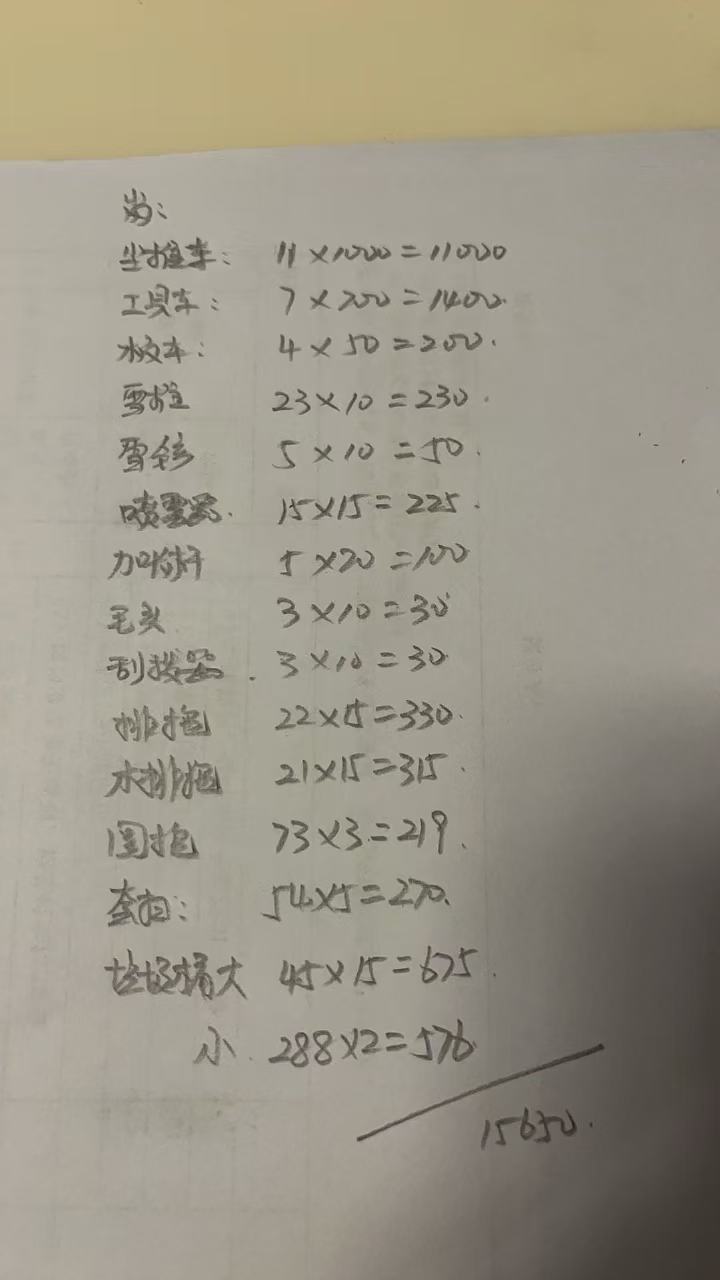 尘推车: 11×1000=11000
工具车: 7×200=1400.
4×50=200.
23×10=230.
5×10=50.
喷雾器. 15×15=225.
5×20=100
毛头 3×10=30
3×10=30
排拖 22×15=330.
水排拖 21×15=315.
圆拖 73×3=219.
套扫: 54×5=270.
垃圾桶大 45×15=675.
小 288×2=576
15650.